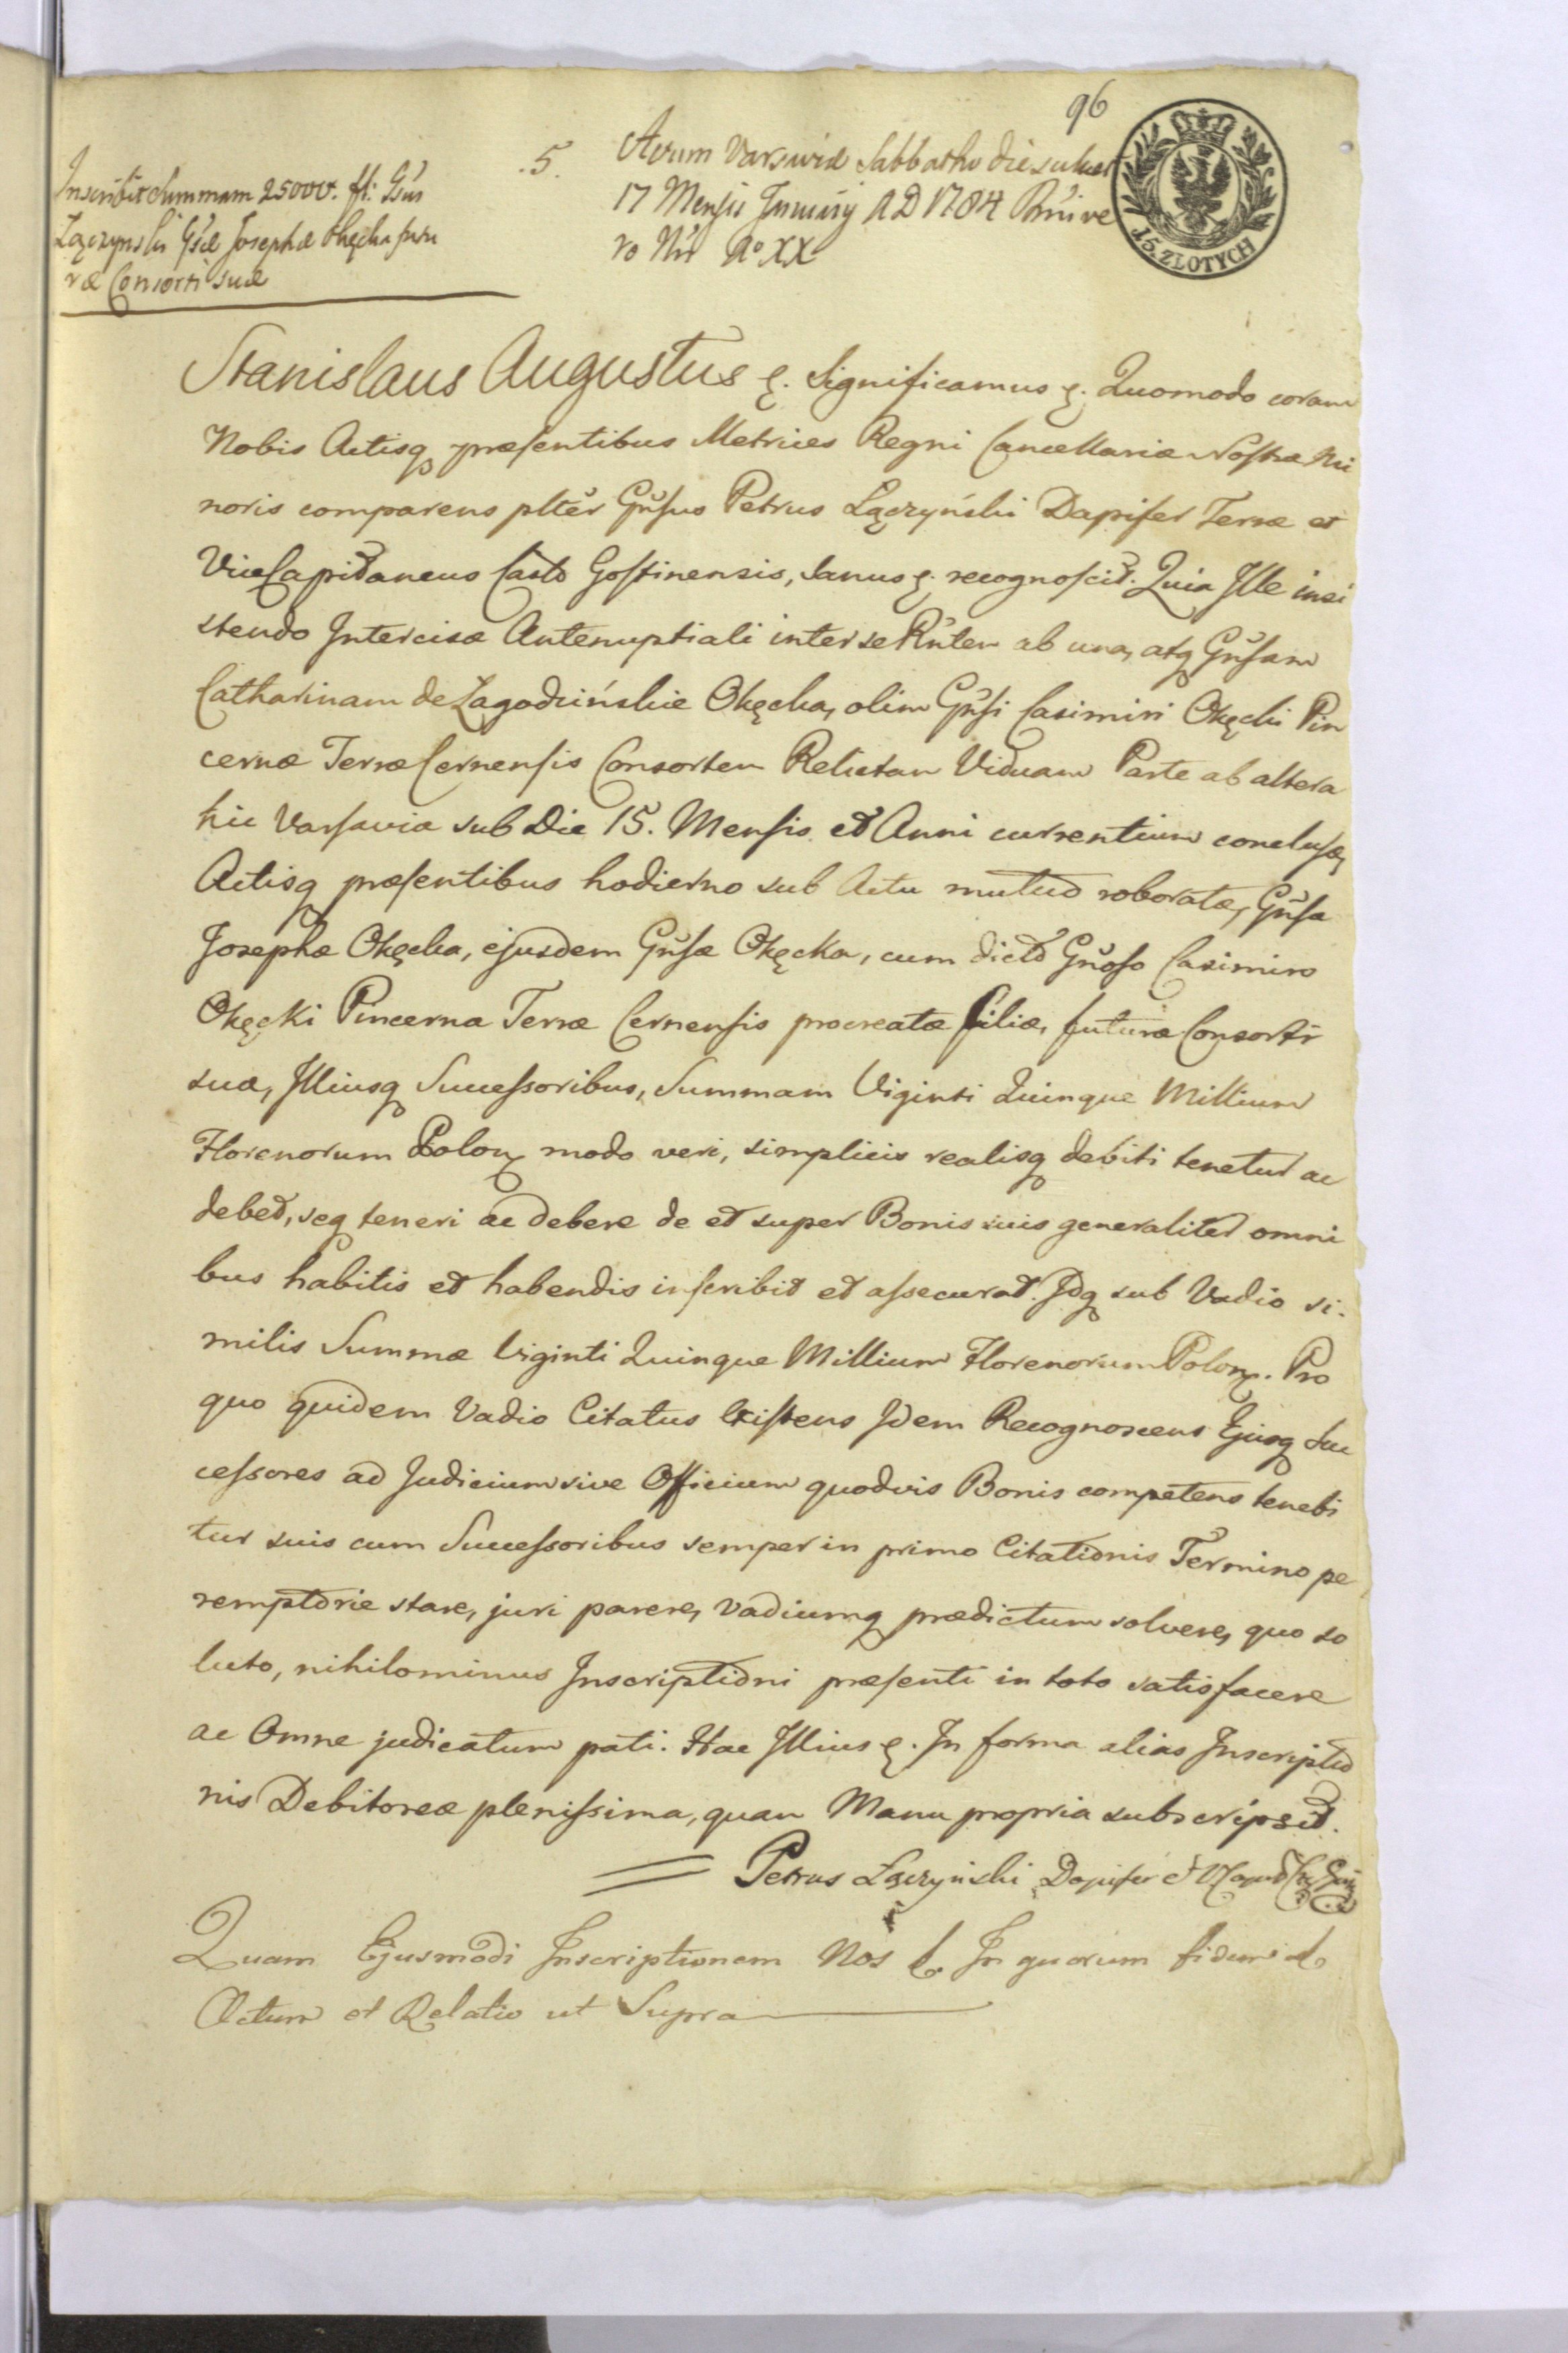 96
15. ZŁOTYCH
Inscribit Summam 25000. fl: Gsus
Łączynski Gsæ Josephæ Okęcka futu
ræ Consorti suæ
5.
Actum Varsaviæ Sabbatho die
17 Mensis January A D 1784
ro No XX
Stanislaus Augustus &. Significamus &. Quomodo coram
Nobis Actisq præsentibus Metrices Regni Cancellariæ Nostræ Mi
noris comparens plter Gnsus Petrus Łączyński Dapifer Terræ et
ViceCapitaneus Casto Gostinensis, Sanus &. recognoscit. Quia Ille insi
stendo Intercisæ Antenuptiali inter se Rntem ab una, atq Gnsam
Catharinam de Łagodzińskie Okęcka, olim Gnsi Casimiri Okęcki Pin
cernæ Terræ Cernensis Consortem Relictam Viduam Parte ab altera
hic Varsavia sub Die 15. Mensis et Anni currentium conclusæ,
Actisq præsentibus hodierno sub Actu mutuo roboratæ, Gnsa
Josepha Okęcka, ejusdem Gnsæ Okęcka, cum dicto Gnoso Casimiro
Okęcki Pincerna Terræ Cernensis procreatæ filiæ, futuræ Consorti
suæ, Illiusq Successoribus, Summam Viginti Quinque Millium
Florenorum Polon modo veri, simplicis realisq debiti tenetur ac
debet, seq teneri ac debere de et super Bonis suis generaliter omni
bus habitis et habendis inscribit et assecurat. Idq sub Vadio si.
milis Summæ Viginti Quinque Millium Florenorum Polon. Pro
quo quidem Vadio Citatus Existens Idem Recognoscens Ejusq Suc
cessores ad Judicium sive Officium quodvis Bonis competens tenebi
tur suis cum Successoribus semper in primo Citationis Termino pe
remptorie stare, juri parere, Vadiumq prædictum solvere, quo so
luto, nihilominus Inscriptioni præsenti in toto satisfacere
ac Omne judicatum pati. Hac Illius &. In forma alias Inscriptio
nis Debitoreæ plenissima, quam Manu propria subscripsit.
Petrus Łączyński Dapifer
Quam Ejusmodi Inscriptionem Nos &. In quorum fidem &.
Actum et Relatio ut Supra